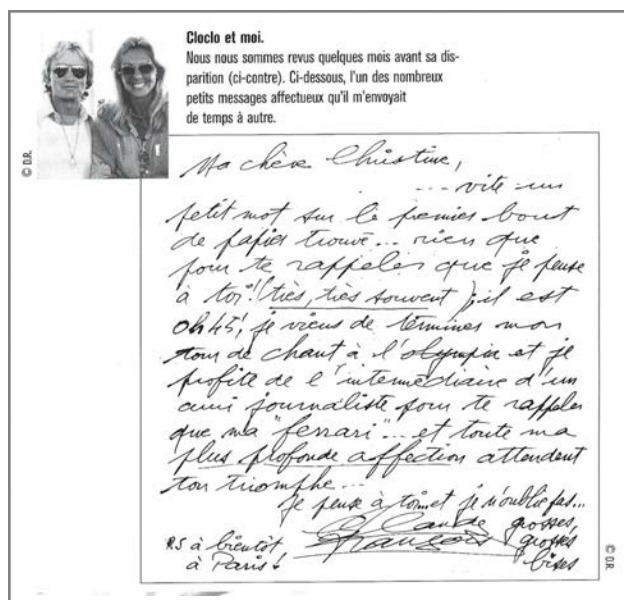 Cloclo et moi.
Nous nous sommes revus quelques mois avant sa dis-
parition (ci-contre). Ci-dessous, l'un des nombreux
petits messages affectueux qu'il m'envoyait
de temps à autre.
© D.R.
Ma chère Christine,
... vite un
petit mot sur le premier bout
de papier trouvé... rien que
pour te rappeler que je pense
à toi! (très, très souvent); il est
0h45', je viens de terminer mon
tour de chant à l'olympia et je
profite de l'intermédiaire d'un
ami journaliste pour te rappeler
que ma "ferrari"... et toute ma
plus profonde affection attendent
ton triomphe...
je pense à toi... et je n'oublie pas...
Claude grosses,
François grosses
bises
P.S à bientôt
à Paris!
© D.R.